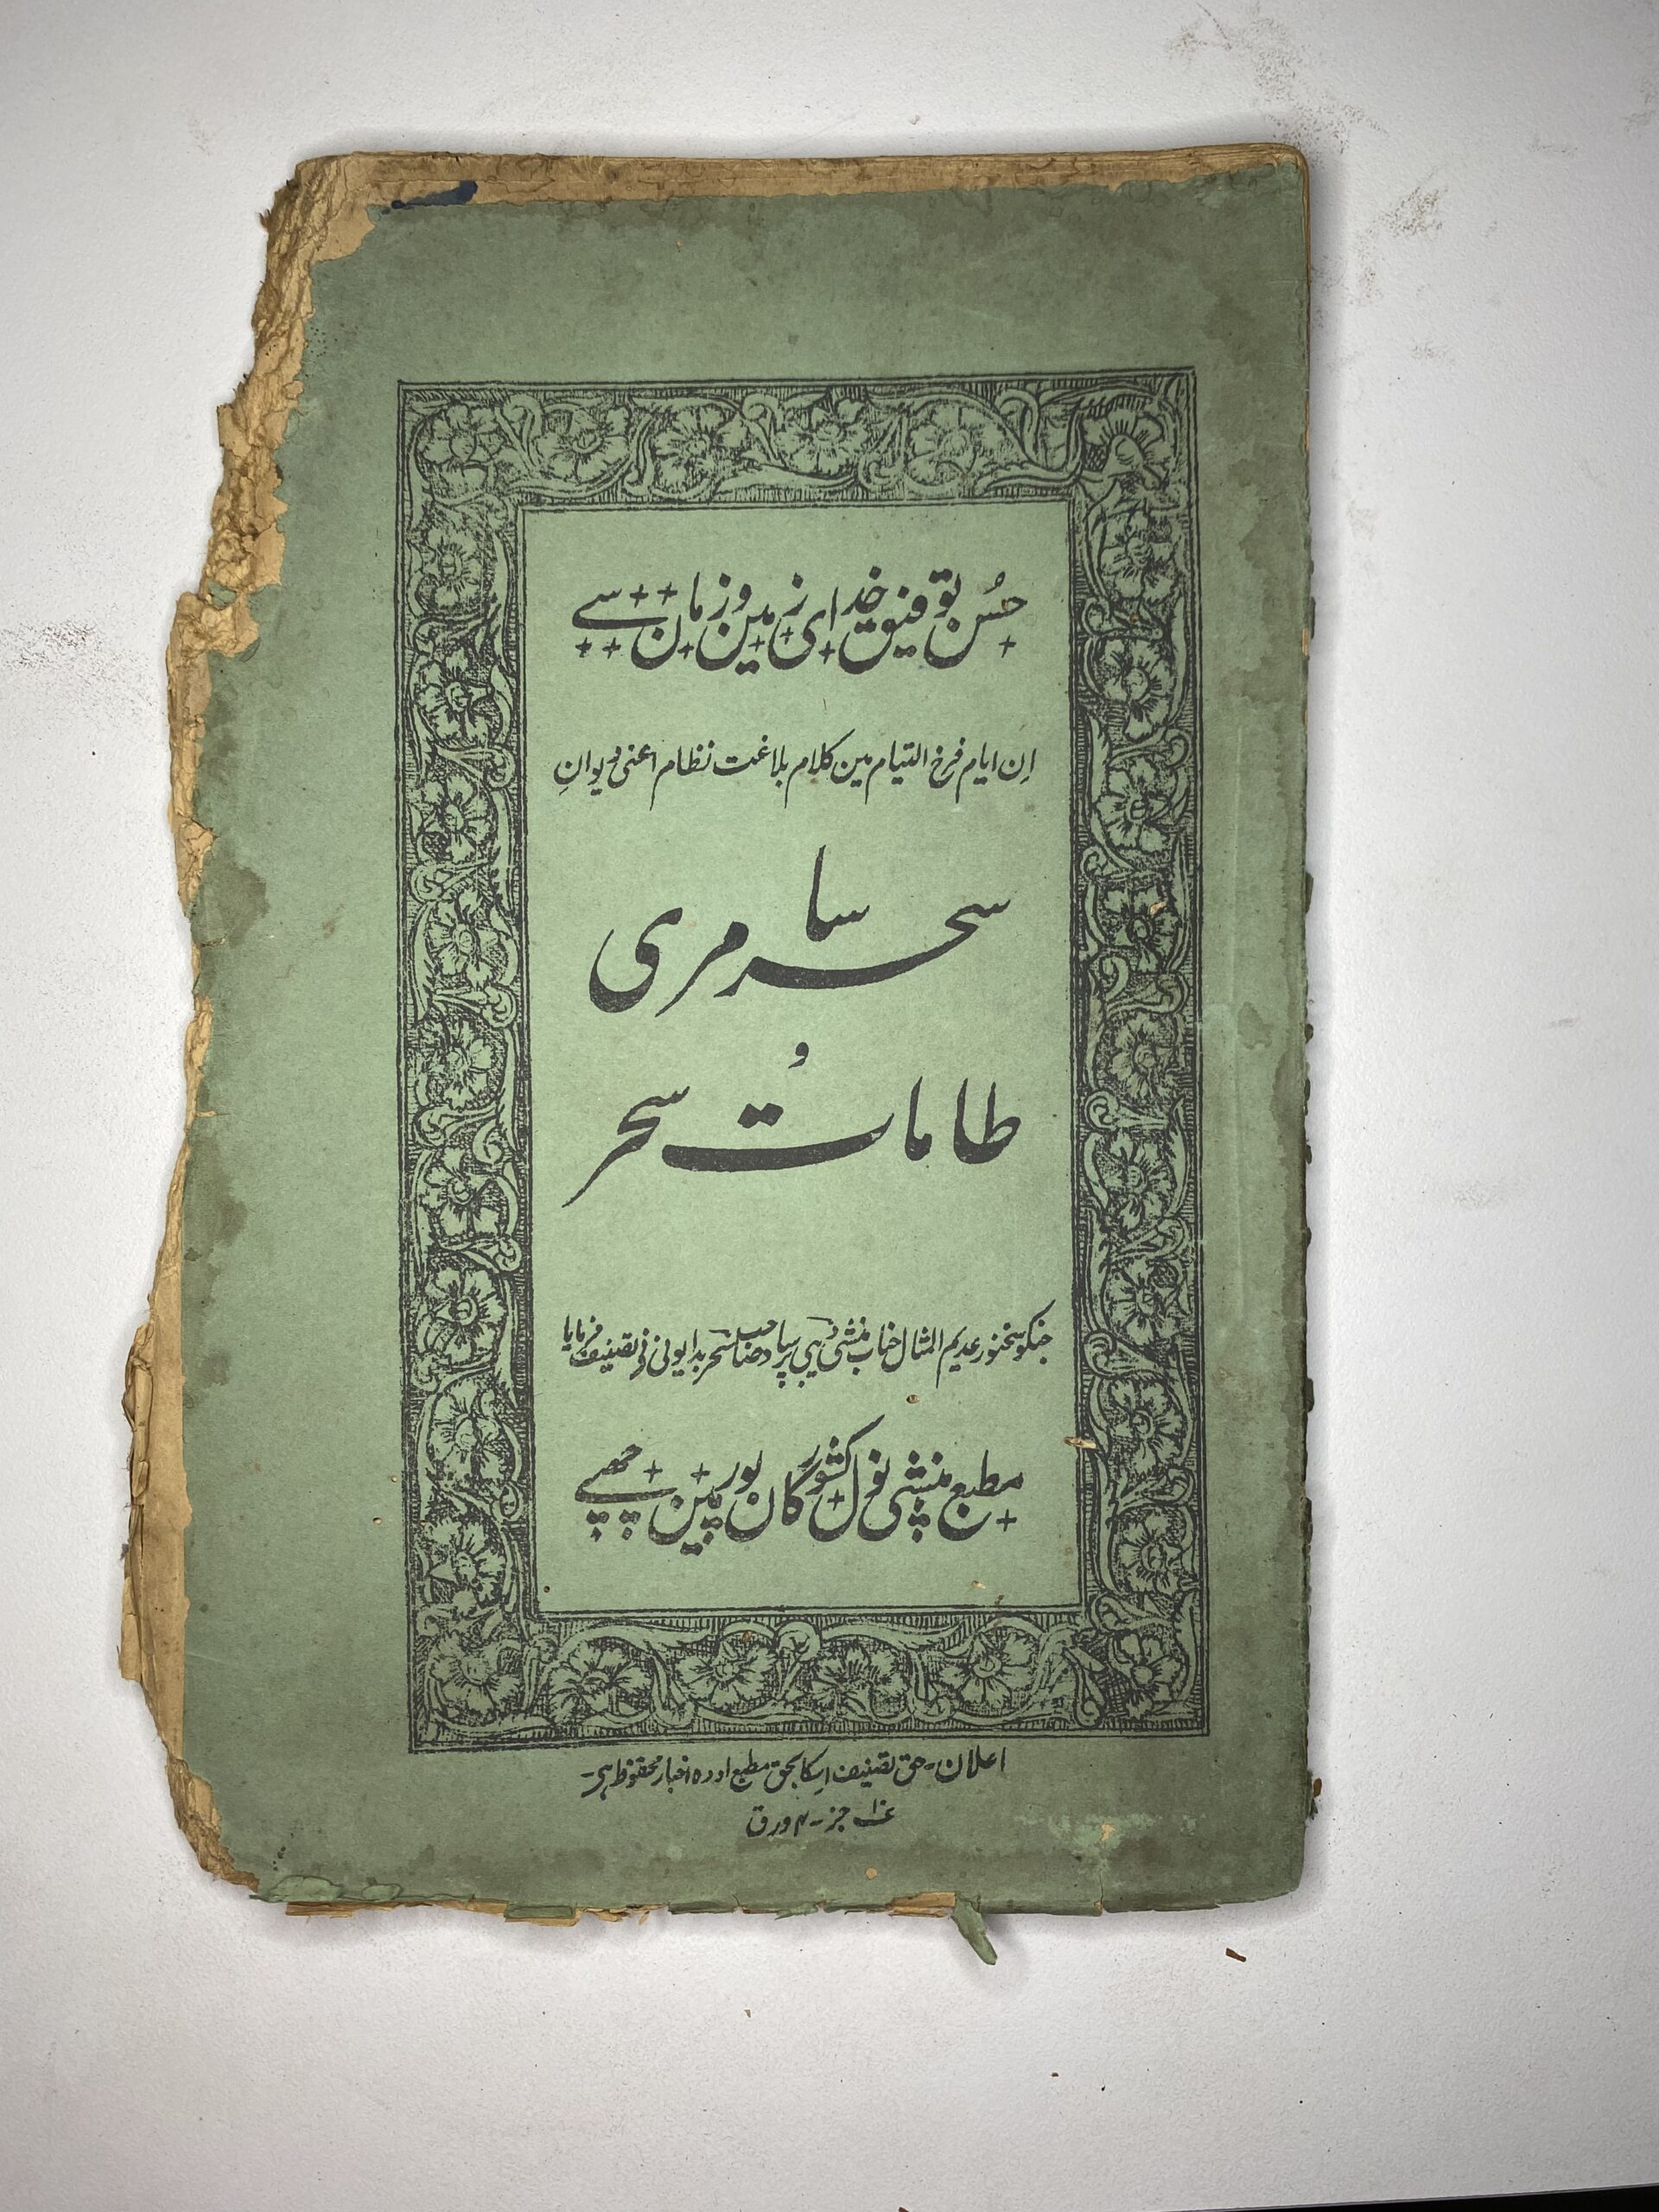 حسُن توفیق خدای زمین وزمان سے
اِن ایام فرخ التیام مین کلام بلاغت نظام اعنی دیوانِ
سحر سامری
و
طامات سحر
جنکو سخنور عدیم المثال جناب منشی دیبی پرساد صاحب سحر بدایونی نے تصنیف فرمایا
مطبع منشی نول کشور کان پور مین چھپے
اعلان۔ حق تصنیف اسکا بحق مطبع اودہ اخبار محفوظ ہی۔
جز۔ ورق